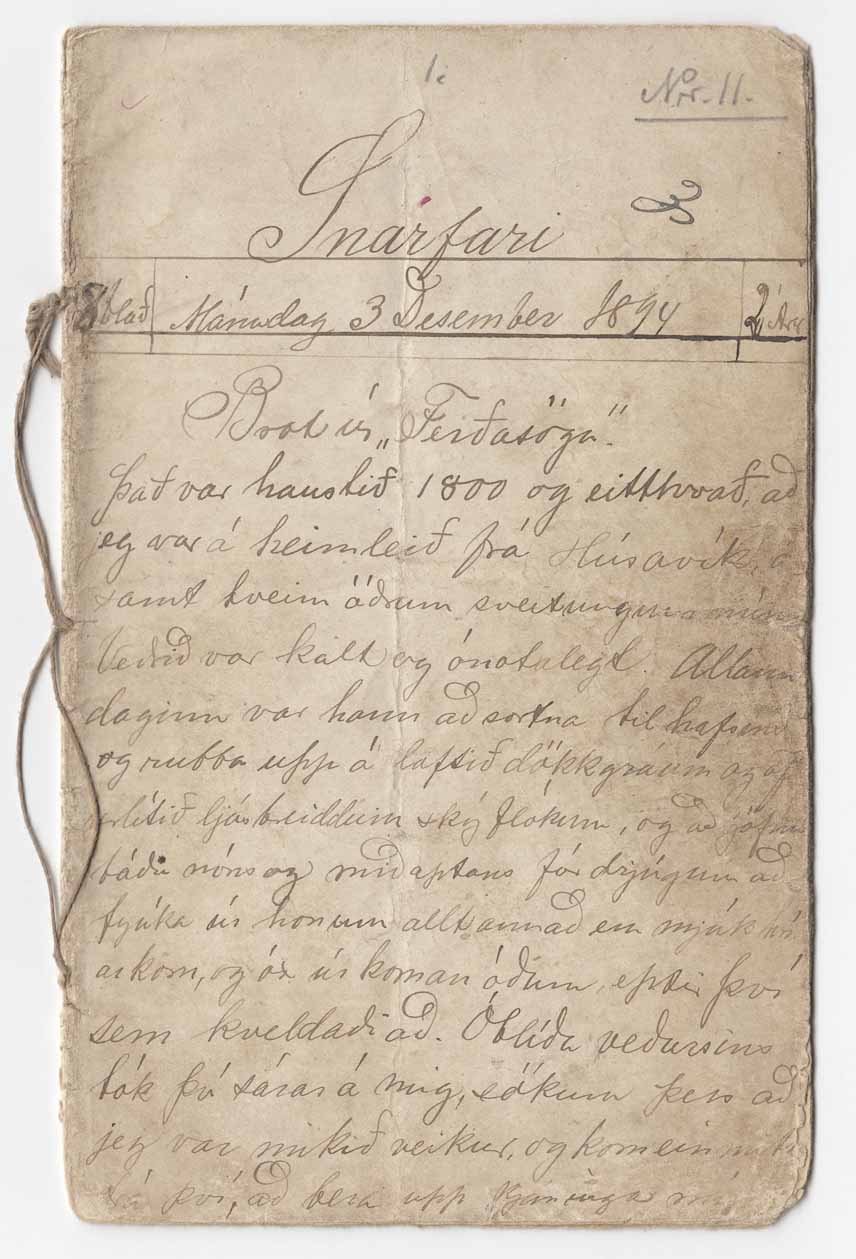 1.
Nr. 11.
Snarfari
blað Mánudag 3 Desember 1894 2 Ár
Brot úr „Ferðasögu“.
Það var haustið 1800 og eitthvað, að
jeg var á heimleið frá Húsavík, á
samt tveim öðrum sveitungum mínum
Veðrið var kalt og ónotalegt. Allann
daginn var hann að sortna til hafsins
og rubba upp á loftið dökkgráum og of
urlítið ljósbreiddum skýflókum, og að jöfnu
báðu nóns og miðaptans fór drjúgum að
fjúka úr honum allt annað en mjúk
askorn, og óx úrkoman óðum, eptir því
sem kveldaði að. Óblíða veðursins
tók því sárar á mig, sökum þess að
jeg var mikið veikur, og kom einmitt
frá því, að bera upp kjáninga